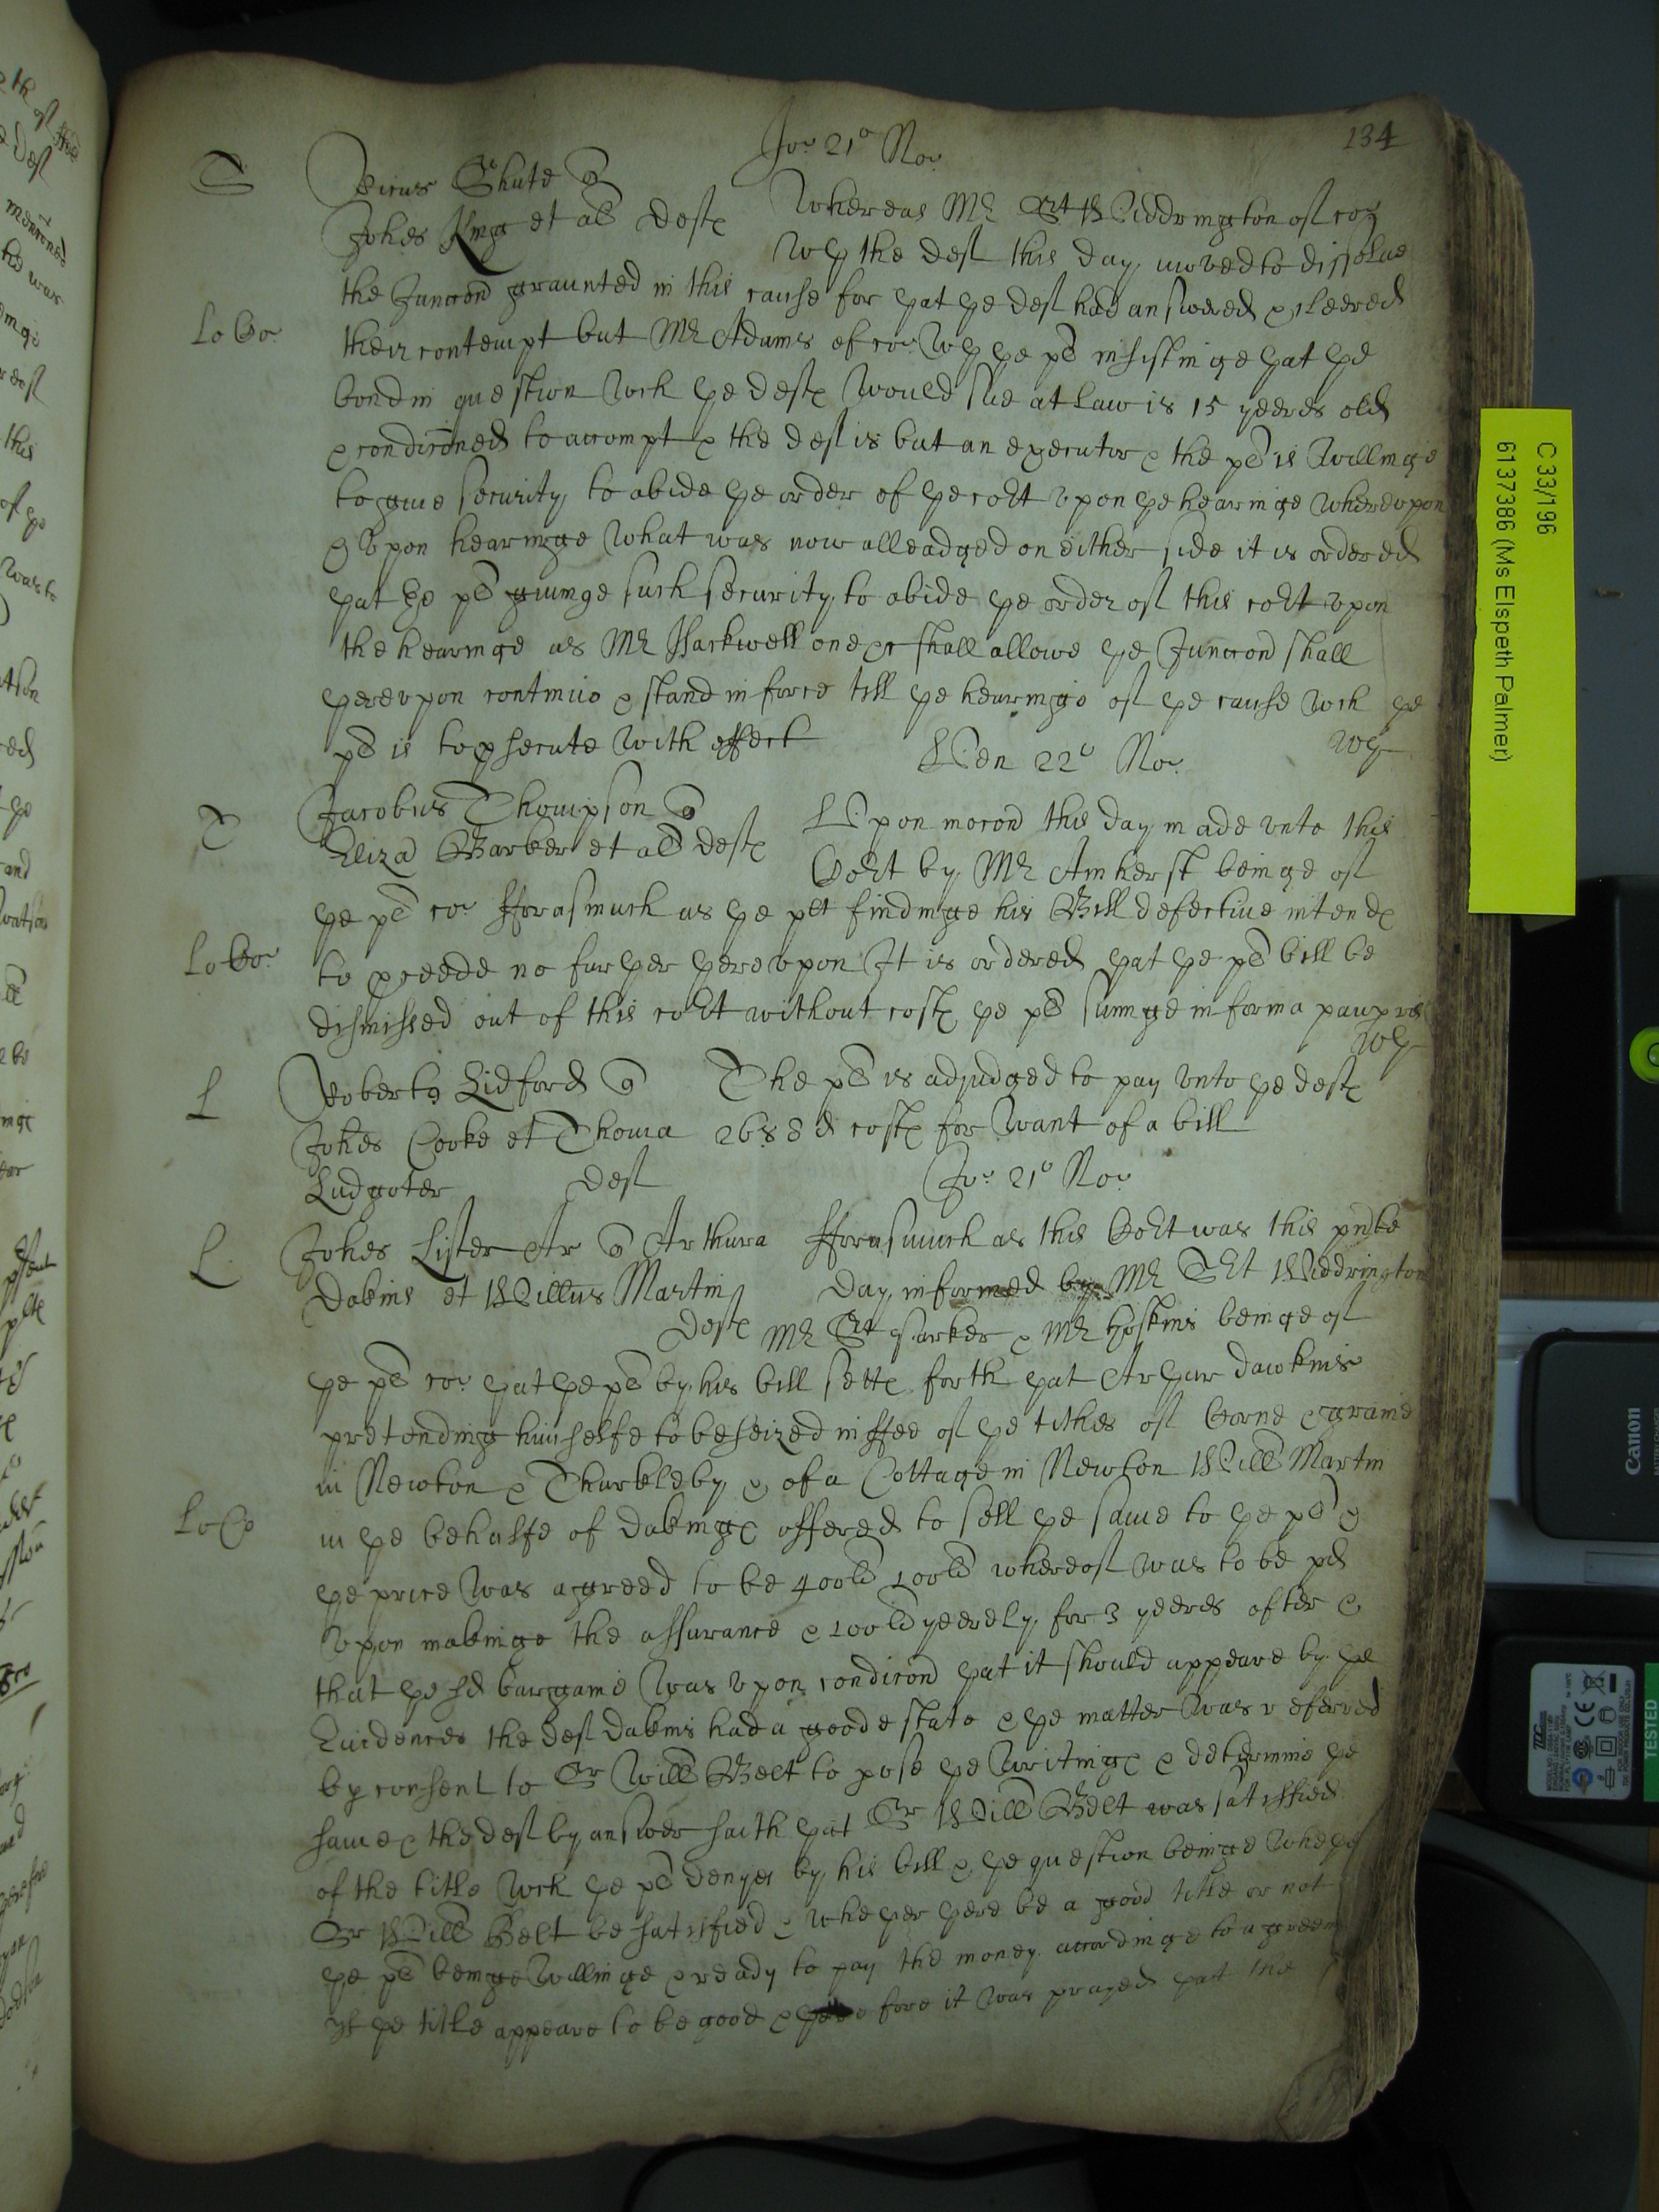 Jov 21° Nov
134
S
Ricus Shute q
Johes King et al Deftes
Whereas Mr Srt Widdrington of coz
wth the deft this day moved to dissolve
the Juncon graunted in this cause for yat ye deft had answered & cleered
Lo Co.
their contempt but Mr Adams of co wth ye pl insistinge yat ye
bond in question wch ye deftes would sue at Law is 15 yeeres old
& condiconed to accompt & the deft is but an executor & the pl is willinge
to give security to abide ye order of ye cort upon ye hearinge whereupon
& upon hearinge what was now alleadged on either side it is ordered
yat ye pl givinge such security to abide ye order of this cort upon
the hearinge as Mr Hackwell one &c shall allowe ye Juncon shall
yereupon continue & stand in force till ye hearinge of ye cause wch ye
pl is to psecute with effect
Ven 22° Nov
wh
T
Jacobus Thompson q
Eliza Barker et al deftes
Upon mocon this day made unto this
Cort by Mr Amherst beinge of
ye pl co fforasmuch as ye plt findinge his Bill defective intendes
Lo Co.
to pceede no furyer yereupon It is ordered yat ye pl bill be
dismissed out of this cort without costes ye pl suinge in forma paupis
wh
L
Robertq Lidford q
The pl is adjudged to pay unto ye deftes
Johes Cooke et Thoma
26s 8d costes for want of a bill
Ludgoter deft
Jov 21° Nov
L
Johes Lister Ar q Arthura
Dakins et Willus Martin
Deftes
fforasmuch as this Cort was this pnte
day informed by Mr Srt Widdrington
Mr Srt Parker & Mr Hoskins beinge of
ye pl co yat ye pl by his bill settes forth yat Aryur Dawkins
pretending himselfe to be seized in ffee of ye tithes of Corne & graine
in Newton & Thurkleby & of a Cottage in Newton Will Martin
Lo Co
in ye behalfe of Dakinges offered to sell ye same to ye pl &
ye price was agreed to be 400l 100l whereof was to be pd
upon makinge the assurance & 100l yeerely for 3 yeeres after &
that ye sd bargaine was upon condicon yat it should appeare by ye
Evidences the deft Dakins had a good estate & ye matter was referred
by consent to Sr Will Belt to pose ye writinges & determine ye
same & the deft by answer saith yat Sr Will Belt was satisffied
of the title wch ye pl denyes by his bill & ye question beinge wheyer
Sr Will Belt be satisfied & wheyer yere be a good title or not
ye pl beinge willinge & ready to pay the money accordinge to agreemt
yf ye title appeare to be good & yerefore it was prayed yat the
C 33/196
6137386 (Ms Elspeth Palmer)
Canon
TESTED